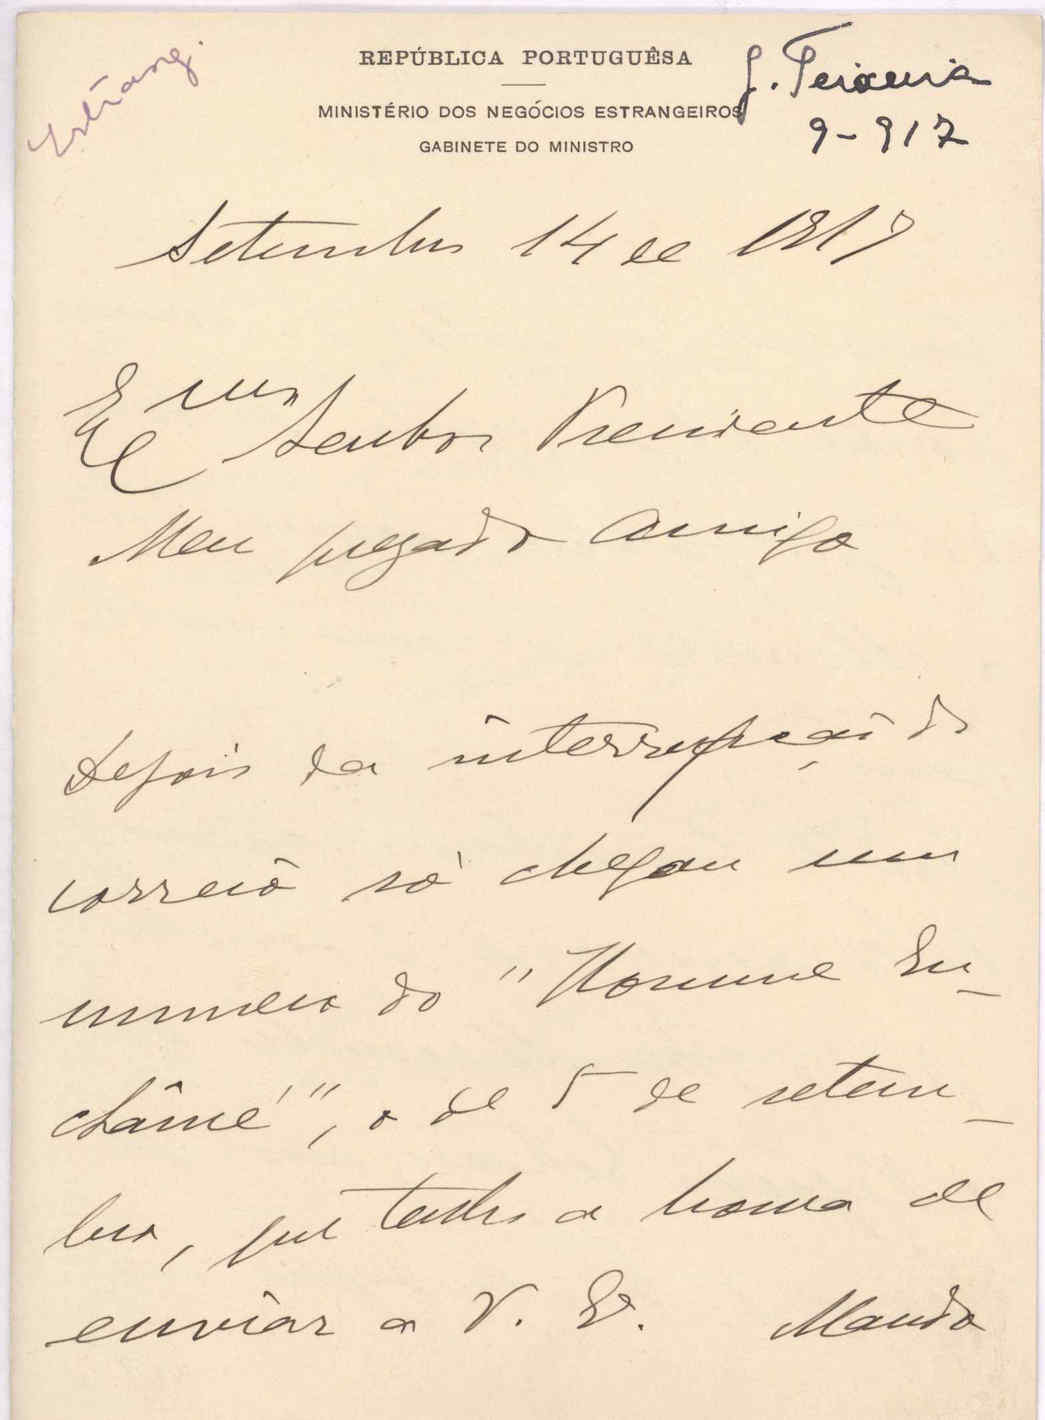 Estrang.
REPÚBLICA PORTUGUÊSA
MINISTÉRIO DOS NEGÓCIOS ESTRANGEIROS
GABINETE DO MINISTRO
G. Teixeira
9-917
Setembro 14 de 1917
Exmo Senhor Presidente
Meu prezado amigo
Depois da interrupção do
correio só chegou um
numero do "Homme En-
châiné", o de 5 de setem-
bro, que tenho a honra de
enviar a V. Ex. Mando